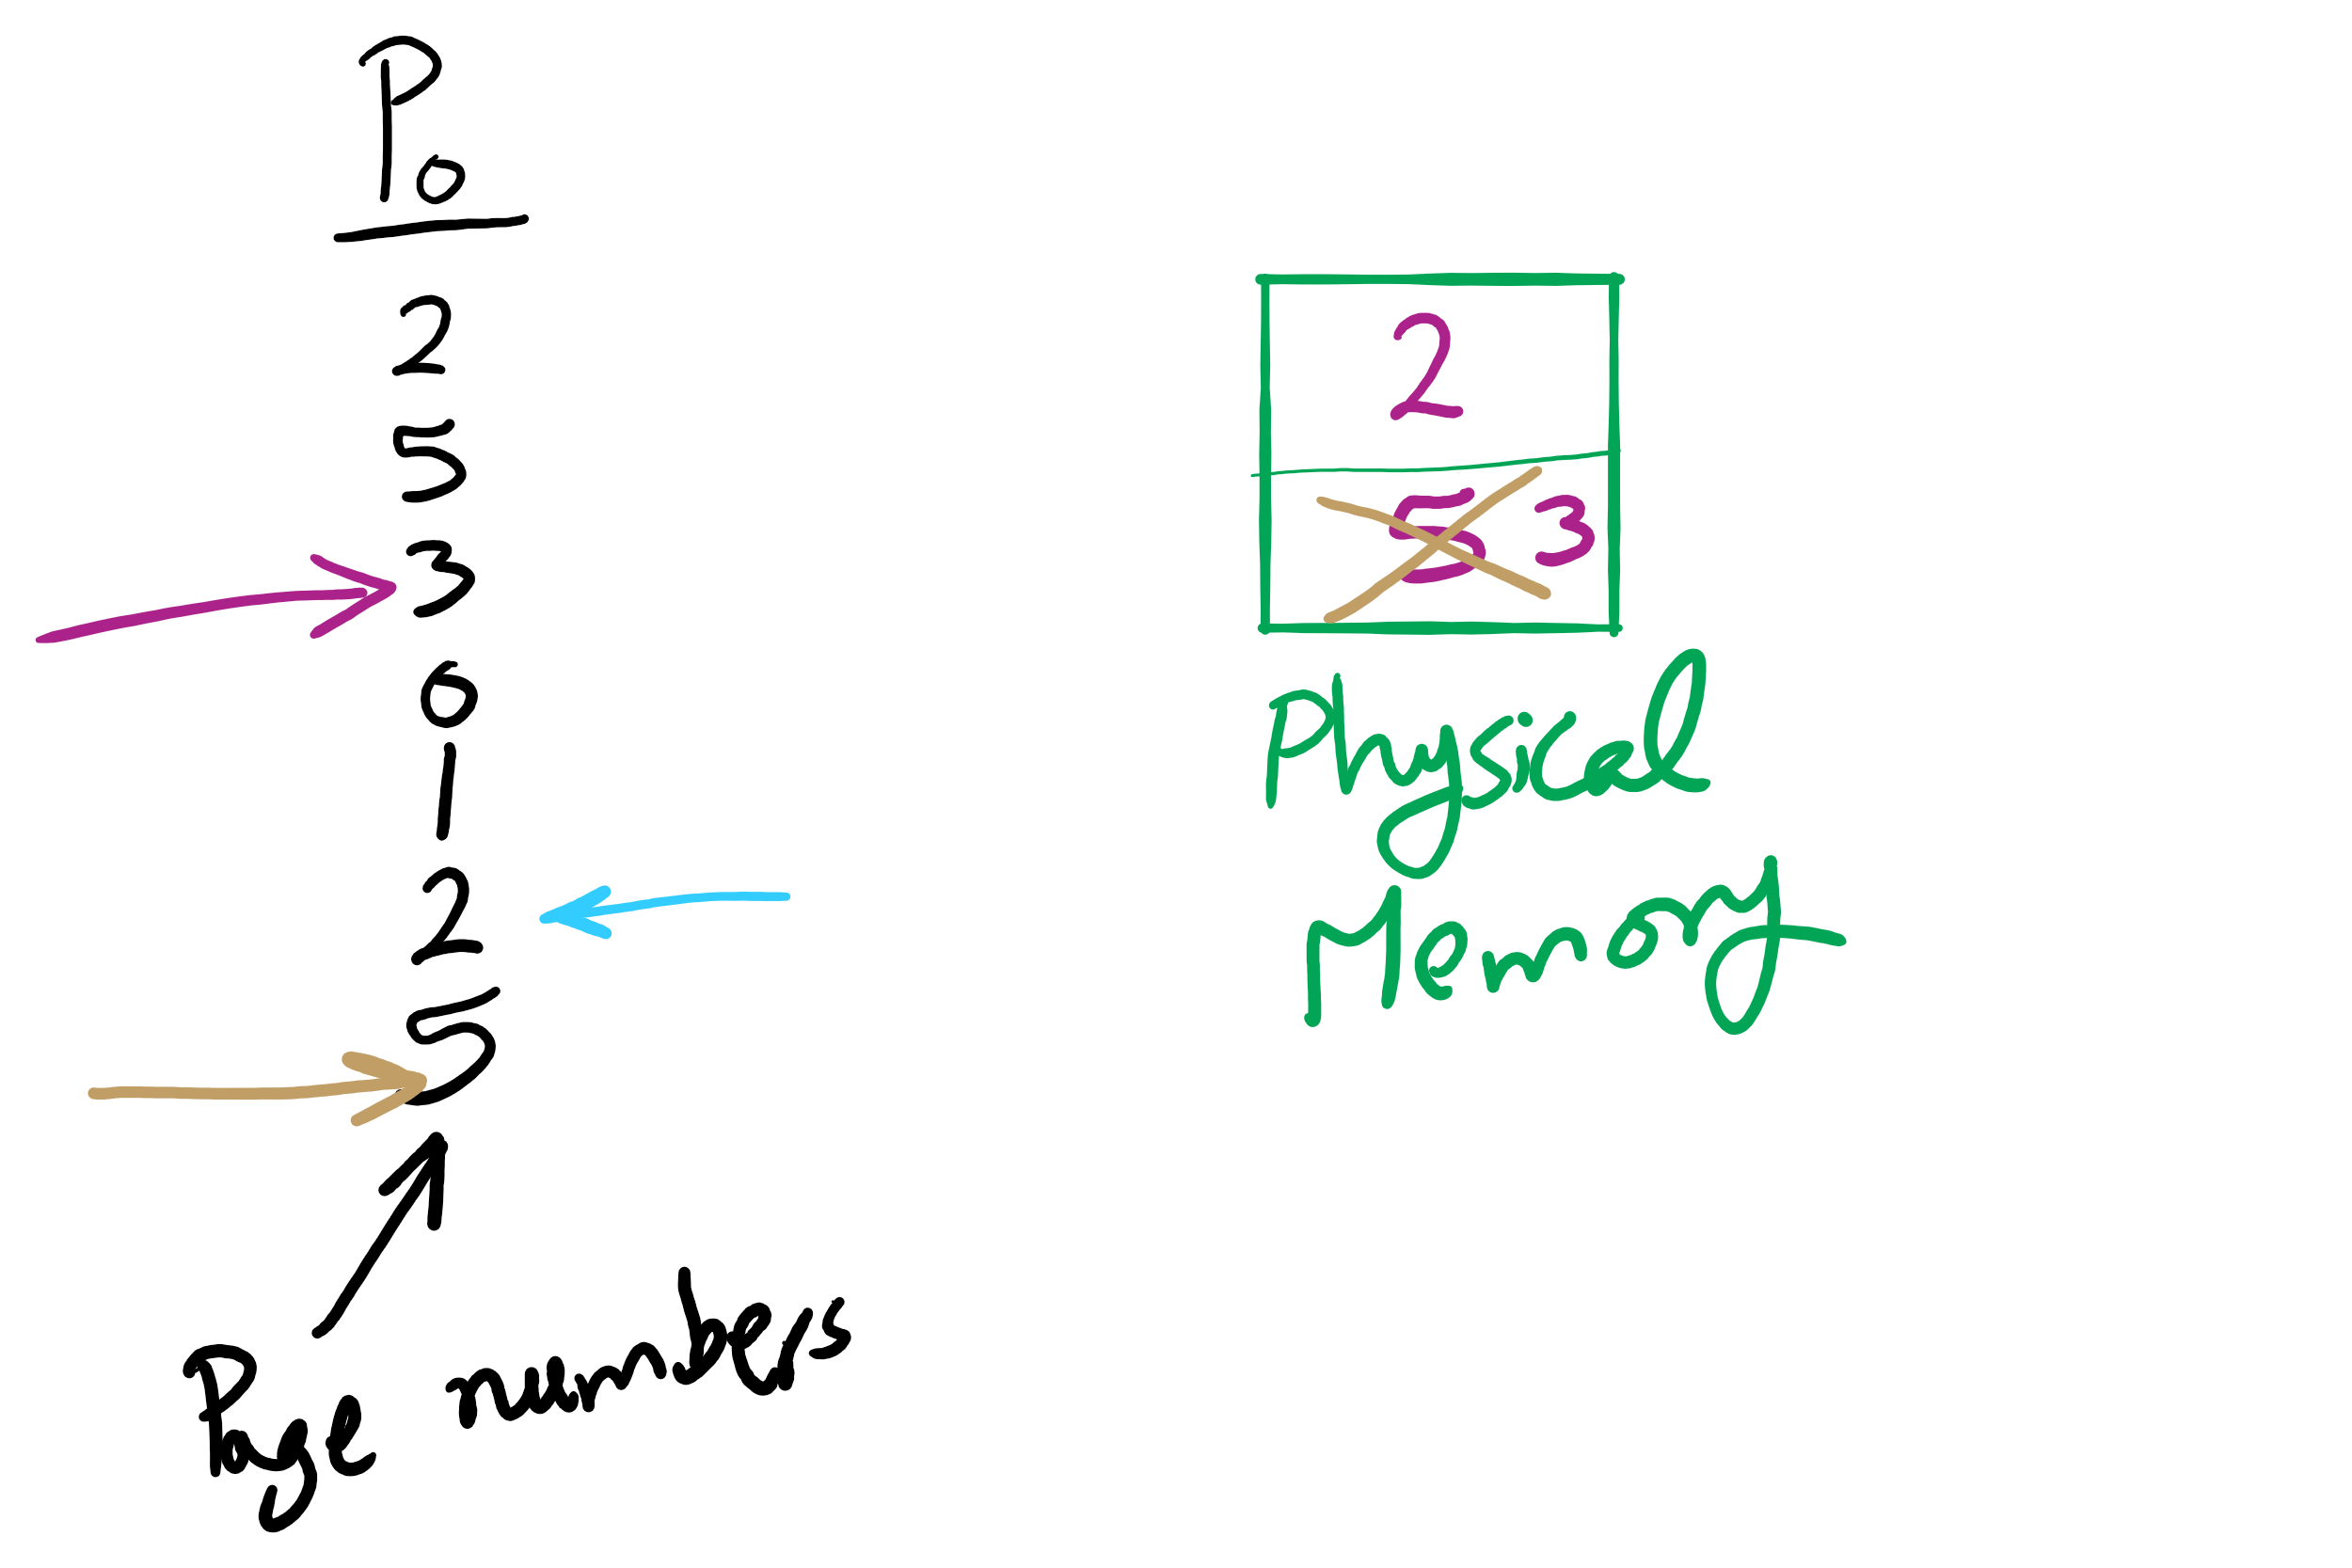 P0
2
5
3
0
1
2
5
Page numbers
2
5 3
Physical
Memory